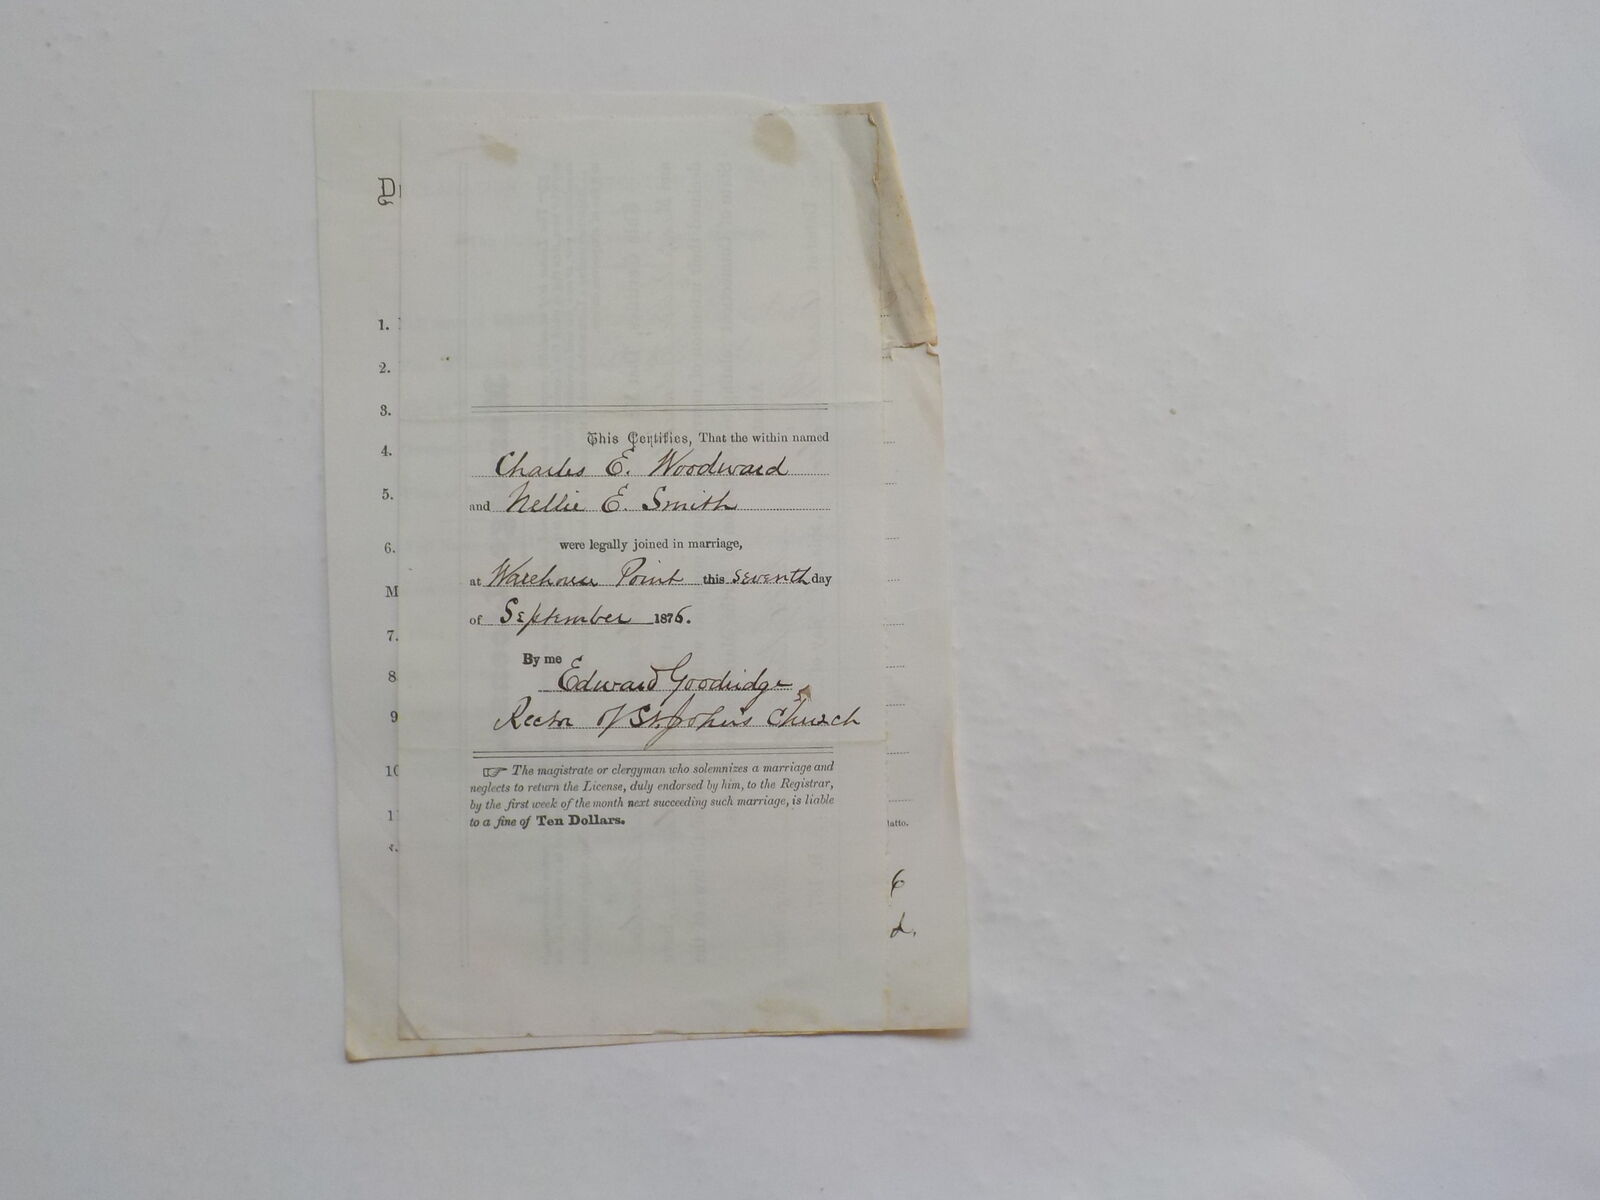 This Certifies, That the within named
Charles E. Woodward
and Nellie E. Smith
were legally joined in marriage,
at Warehouse Point this seventh day
of September 1876.
By me
Edward Goodridge
Rector of St. John's Church
☞ The magistrate or clergyman who solemnizes a marriage and
neglects to return the License, duly endorsed by him, to the Registrar,
by the first week of the month next succeeding such marriage, is liable
to a fine of Ten Dollars.
1.
2.
3.
4.
5.
6.
M
7.
8
9
10
11
latto.